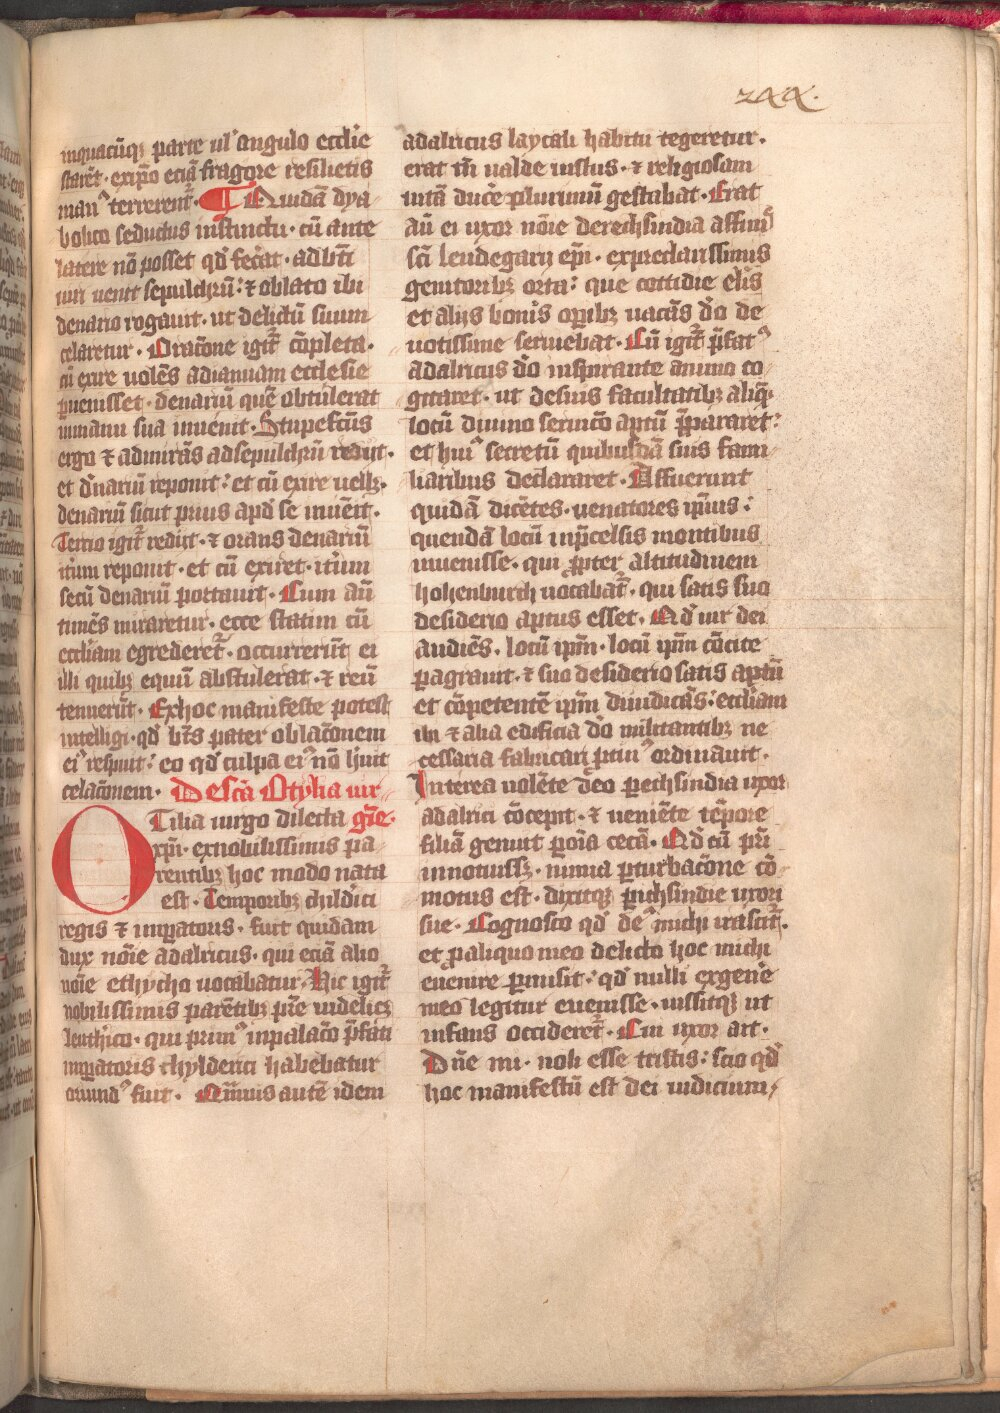 xxx.
inquacūqꝫ parte ul' angulo ecclīe
starēt · exip̄o eciā fragore resilietis
man9 terrerent᷑ · Quidā dya
bolico seductus instinctu · cū ante
latere nō posset qd̄ fec̄at · ad bt̄i
uiri uenit sepulchrū : ⁊ oblato ibi
denario rogauit · ut delictū suum
celaretur · Orac̄one igit᷑ cōpleta ·
cū exire uolēs adianuam ecclesie
ꝑuenisset · denariū quē obtulerat
inmanu sua inuenit · Stupefct̄us
ergo ⁊ admirās adsepulchrū rediit ·
et d̄nariū reponit : et cū exire uellꝫ ·
denariū sicut prius apd̄ se inuēit ·
Tercio igit᷑ rediit · ⁊ orans denariū
itꝰum reponit · et cū exiret · itꝰum
secū denariū portauit · Cum aū
timēs miraretur · ecce statim cū
eccliam egrederet᷑ · occurrerūt ei
illi quibꝫ equum abstulerat · ⁊ reū
tenuerūt · Exhoc manifeste potest
intelligi · qd̄ bt̄s pater oblac̄onem
ei9 respuit : eo qd̄ culpa ei9 nō hūit
celac̄onem · De scā Otylia uir
Otilia uirgo dilecta gīe ·
xp̄i · exnobilissimis pa
rentibꝫ hoc modo nata
est · Temporibꝫ childici
regis ⁊ inp̄atoris · fuit quidam
dux nōie adalricus · qui eciā alio
nōie ethycho uocabatur · Hic igit᷑
nobilissimis parētibꝫ pr̄e uidelicꝫ
leuthico · qui prim9 inpalac̄o p̄fati
inꝑatoris chylderici habebatur
oriund9 fuit · Qm̄uis autē idem
adalricus laycali habitu tegeretur ·
erat tn̄ ualde iustus · ⁊ religiosam
uitā ducē plurimū gestabat · Erat
aū ei uxor nōie derechsindia affinis
sc̄i leudegarii ep̄i · expreclarissimis
genitoribꝫ orta : que cottidie elīs
et aliis bonis oꝑibꝫ uacās dō de
uotissime seruiebat · Cū igit᷑ p̄fat9
adalricus dō inspirante animo co
gitaret · ut desuis facultatibꝫ aliq̄
locū diuino seruic̄o aptū p̄ꝑararet :
et hui9 secretū quibusdā suis fami
liaribus declararet · Affuerunt
quidā dicētes · uenatores ip̄ius :
quendā locū inp̄celsis montibus
inuenisse · qui ꝓpter altitudinem
hohenburch uocabat᷑ · qui satis suo
desiderio aptus esset · Qd̄ uir dei
audiēs · locū ip̄m · locū ip̄m cōcite
ꝑagrauit · ⁊ suo desiderio satis aptū
et cōpetentē ip̄m diiudicās · eccliam
ibi ⁊ alia edificia dō militantibꝫ ne
cessaria fabricari ꝓtin9 ordinauit ·
Interea uolēte deo ꝑechsindia uxor
adalrici cōcepit · ⁊ ueniēte tēpore
filiā genuit ꝑoīa cecā · Qd̄ cū pr̄i
innotuissꝫ · nimia ꝑturbac̄one cō
motus est · dixitqꝫ ꝑichsindie uxori
sue · Cognosco qd̄ de9 michi irascit᷑ ·
et ꝓ aliquo meo delicto hoc michi
euenire ꝑmisit : qd̄ nulli exgenē
meo legitur euenisse · iussitqꝫ ut
infans occideret᷑ · Cui uxor ait ·
Dn̄e mi · noli esse tristis : scio qd̄
hoc manifestū est dei iudicium